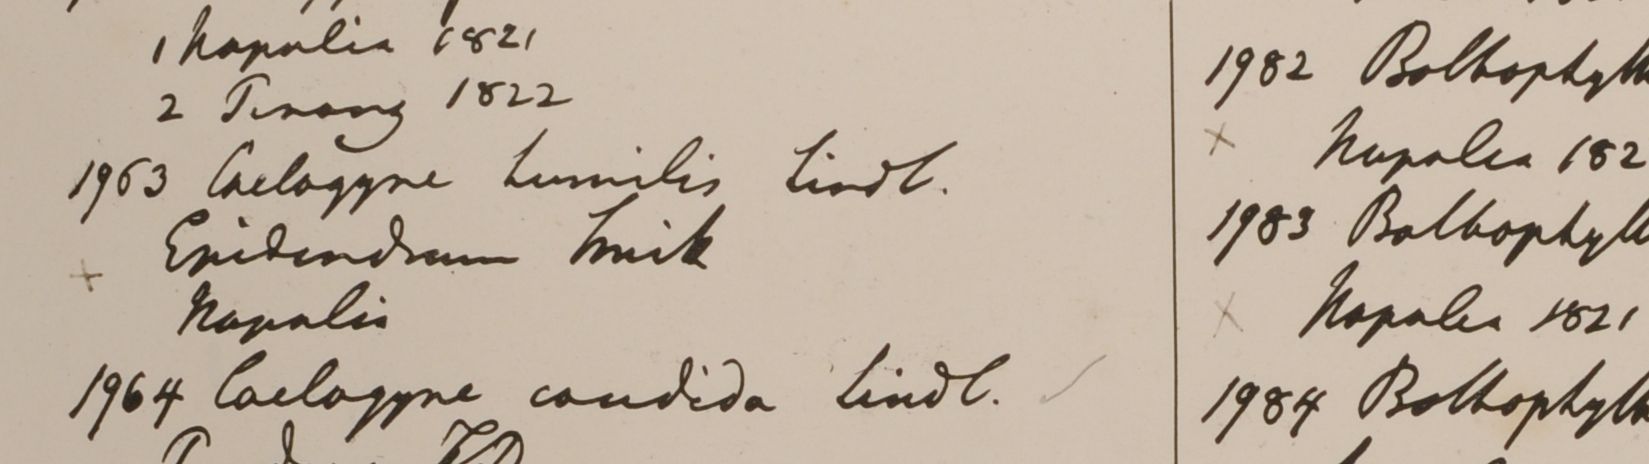 1 Napalia 1821
2 Penang 1822
1963 Caelogyne humilis Lindl.
Epidendrum Smith
Napalia
1964 Caelogyne candida Lindl.
1982 Bolbophyll
Napalia 182
1983 Bolbophyll
Napalia 1821
1984 Bolbophyll